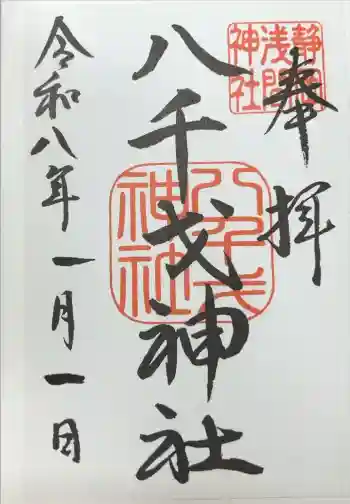 奉拝
静岡浅間神社
八千戈神社
八千戈神社
令和八年一月一日